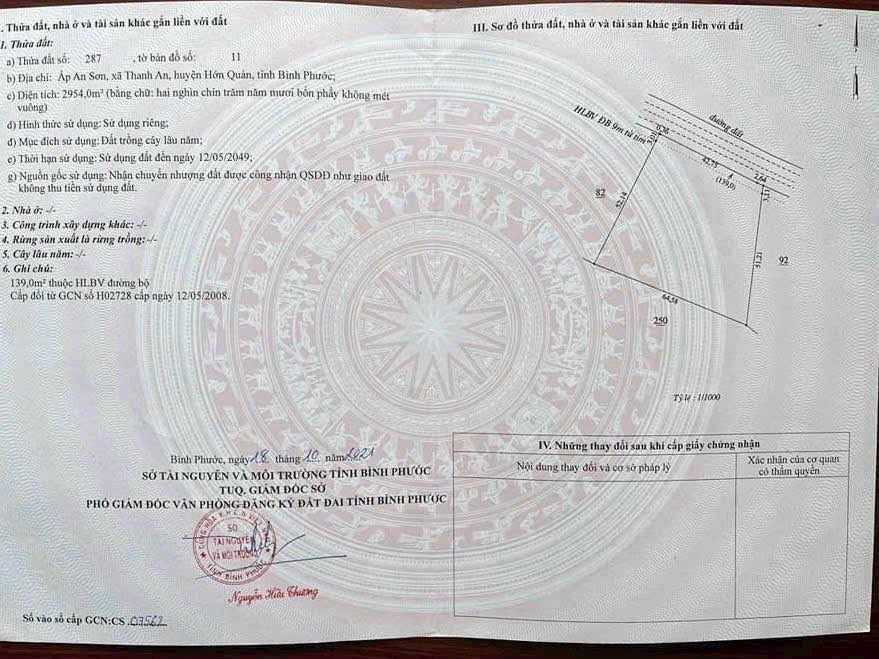 . Thửa đất, nhà ở và tài sản khác gắn liền với đất
1. Thửa đất:
a) Thửa đất số: 287 , tờ bản đồ số: 11
b) Địa chỉ: Ấp An Sơn, xã Thanh An, huyện Hớn Quản, tỉnh Bình Phước;
c) Diện tích: 2954,0m² (bằng chữ: hai nghìn chín trăm năm mươi bốn phẩy không mét
vuông)
d) Hình thức sử dụng: Sử dụng riêng;
đ) Mục đích sử dụng: Đất trồng cây lâu năm;
e) Thời hạn sử dụng: Sử dụng đất đến ngày 12/05/2049;
g) Nguồn gốc sử dụng: Nhận chuyển nhượng đất được công nhận QSDĐ như giao đất
không thu tiền sử dụng đất.
2. Nhà ở: -/-
3. Công trình xây dựng khác: -/-
4. Rừng sản xuất là rừng trồng: -/-
5. Cây lâu năm: -/-
6. Ghi chú:
139,0m² thuộc HLBV đường bộ
Cấp đổi từ GCN số H02728 cấp ngày 12/05/2008.
Bình Phước, ngày 18 tháng 10 năm 2021
SỞ TÀI NGUYÊN VÀ MÔI TRƯỜNG TỈNH BÌNH PHƯỚC
TUQ. GIÁM ĐỐC SỞ
PHÓ GIÁM ĐỐC VĂN PHÒNG ĐĂNG KÝ ĐẤT ĐAI TỈNH BÌNH PHƯỚC
SỞ
TÀI NGUYÊN
VÀ MÔI TRƯỜNG
TỈNH BÌNH PHƯỚC
Nguyễn Hữu Chương
Số vào sổ cấp GCN:CS 07562
III. Sơ đồ thửa đất, nhà ở và tài sản khác gắn liền với đất
đường đất
HLBV ĐB 9m từ tim
0,26
3,01
42,75
(139,0)
2,64
3,11
82
52,14
51,21
92
64,58
250
Tỷ lệ : 1/1000
IV. Những thay đổi sau khi cấp giấy chứng nhận
Nội dung thay đổi và cơ sở pháp lý
Xác nhận của cơ quan
có thẩm quyền